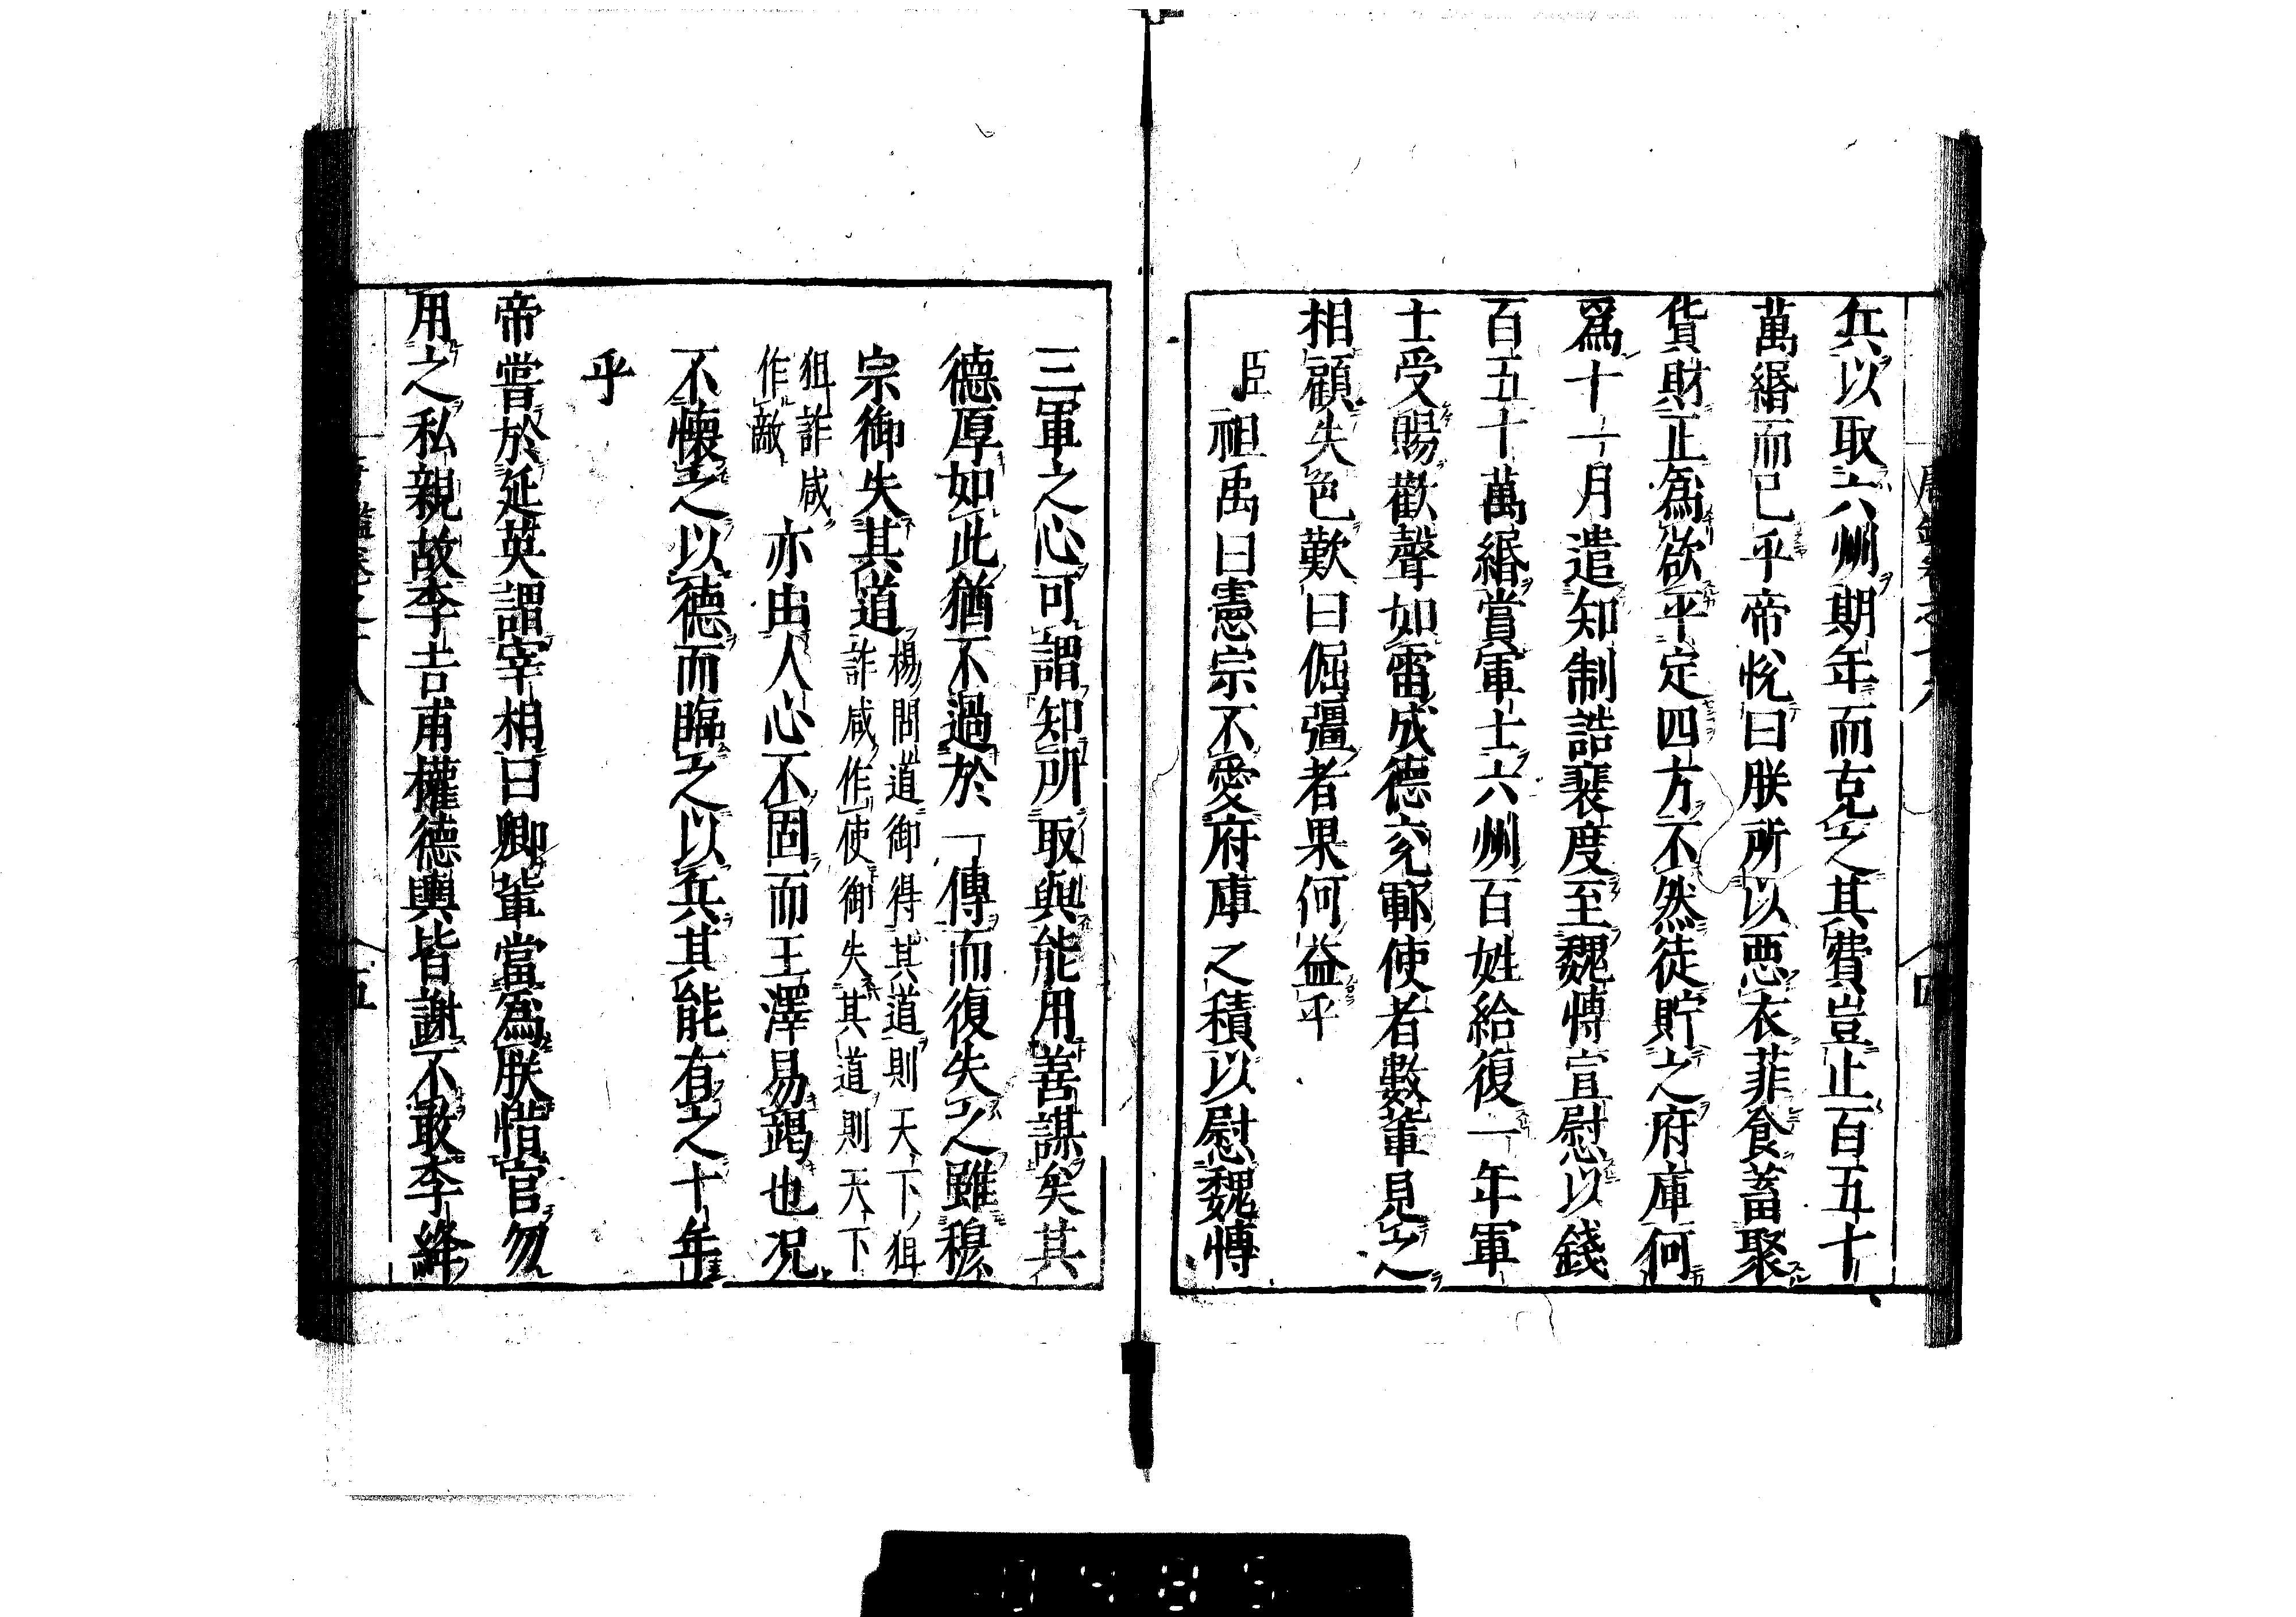 兵以取六州期年而克之其費豈止百五十
萬緡而已乎帝悅曰朕所以惡衣菲食蓄聚
貨財正爲欲平定四方不然徒貯之府庫何
爲十一月遣知制誥裴度至魏愽宣慰以錢
百五十萬緡賞軍士六州百姓給復一年軍
士受賜歡聲如雷成德兖鄆使者數輩見之
相顧失色歎曰倔彊者果何益乎
臣祖禹曰憲宗不愛府庫之積以慰魏愽
三軍之心可謂知所取與能用善謀矣其
德厚如此猶不過於一傳而復失之雖穆
宗御失其道
楊問道御得其道則天下狙
詐咸作使御失其道則天下
狙詐咸
作敵
亦由人心不固而王澤易竭也况
不懷之以德而臨之以兵其能有之十年
乎
帝嘗於延英謂宰相曰卿輩當爲朕惜官勿
用之私親故李吉甫權德輿皆謝不敢李絳